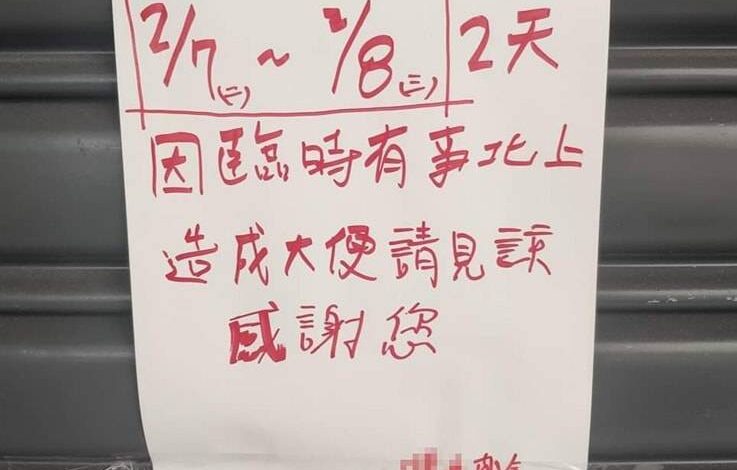 2/7(二)~2/8(三) 2天
因臨時有事北上
造成大便請見諒
感謝您